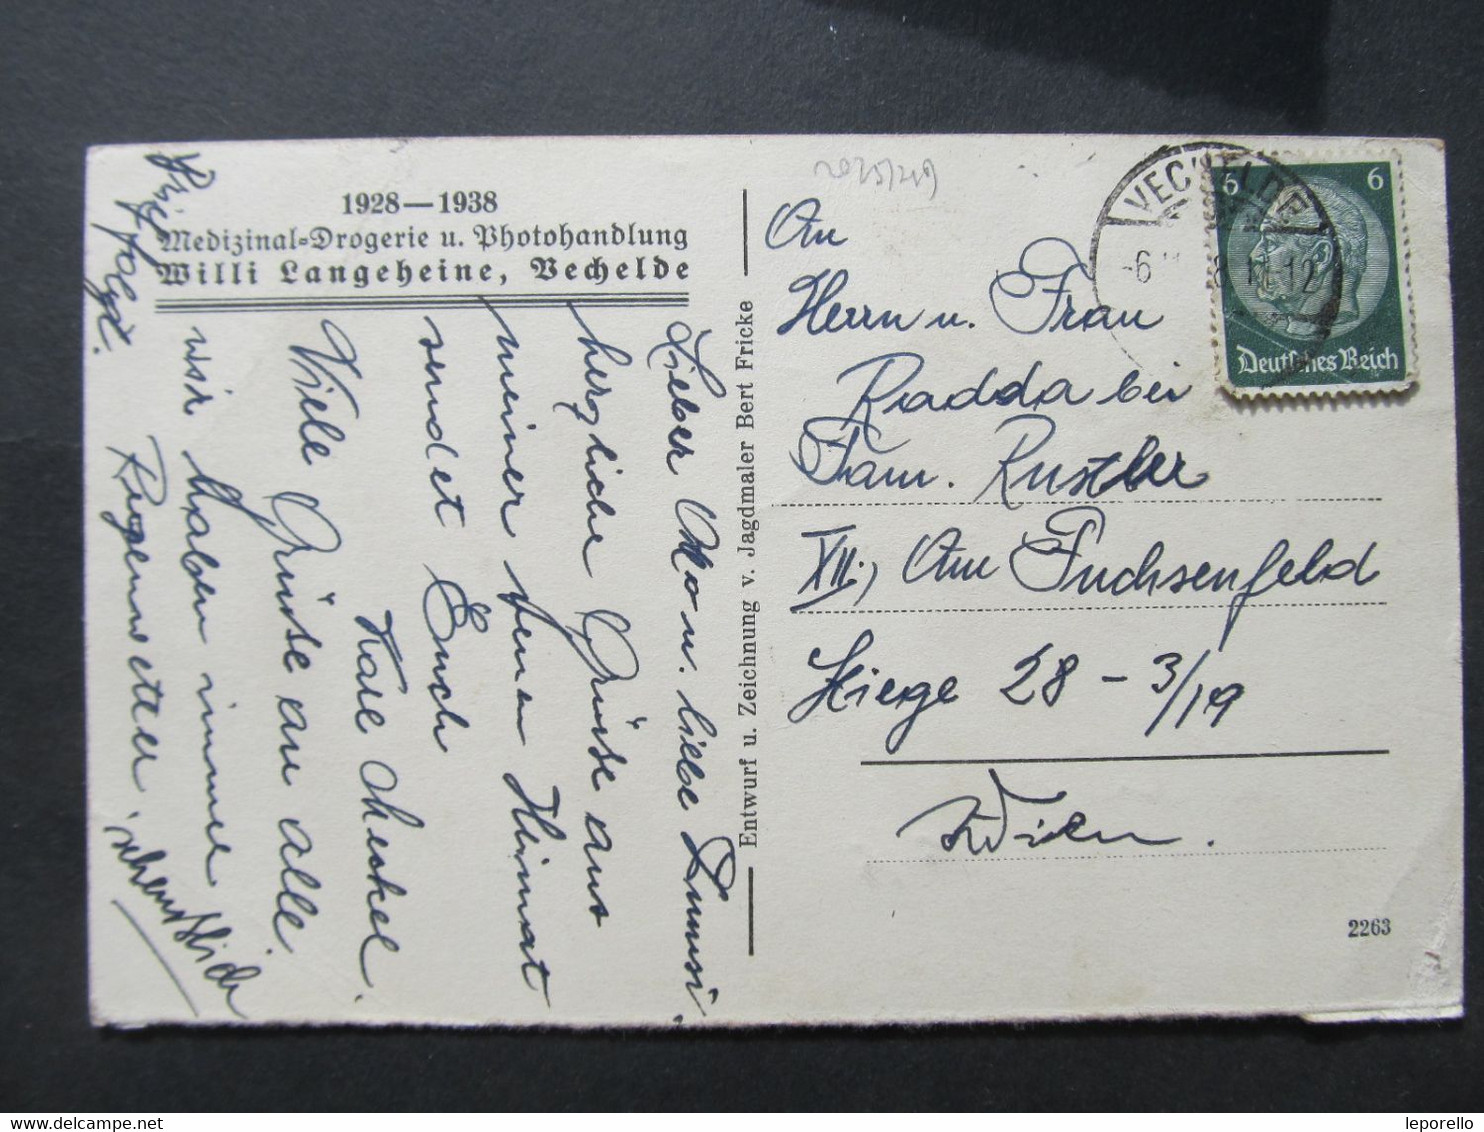 1928—1938
Medizinal-Drogerie u. Photohandlung
Willi Langeheine, Vechelde
Lieber Otto u. liebe Summsi,
herzliche Grüße aus
meiner fernen Heimat
sendet Euch
Karl
Viele Grüße an alle
wir haben immer
Regenwetter.
Brief folgt.
Entwurf u. Zeichnung v. Jagdmaler Bert Fricke
An
Herrn u. Frau
Radda bei
Fam. Rustler
XII., Am Fuchsenfeld
Stiege 28 – 3/19
Wien.
2263
VECHELDE
-6
-12
6 6
Deutsches Reich
leporello